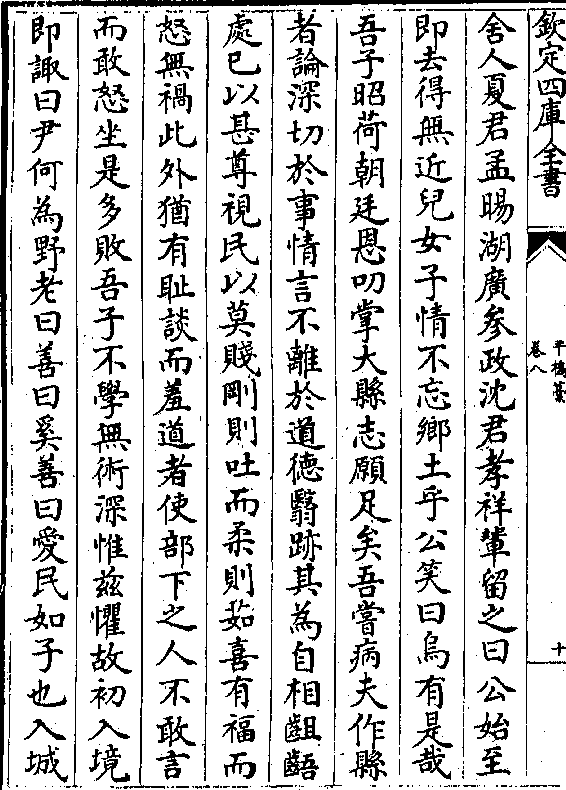 欽定四庫全書
平橋藳
卷八
十
舍人夏君孟暘湖廣叅政沈君孝祥輩留之曰公始至
即去得無近兒女子情不忘鄉土乎公笑曰烏有是哉
吾子昭荷朝廷恩叨掌大縣志願足矣吾嘗病夫作縣
者論深切於事情言不離於道德翳跡其為自相齟齬
處已以甚尊視民以莫賤剛則吐而柔則茹喜有福而
怒無禍此外猶有耻談而羞道者使部下之人不敢言
而敢怒坐是多敗吾子不學無術深惟兹懼故初入境
即諏曰尹何為野老曰善曰奚善曰愛民如子也入城